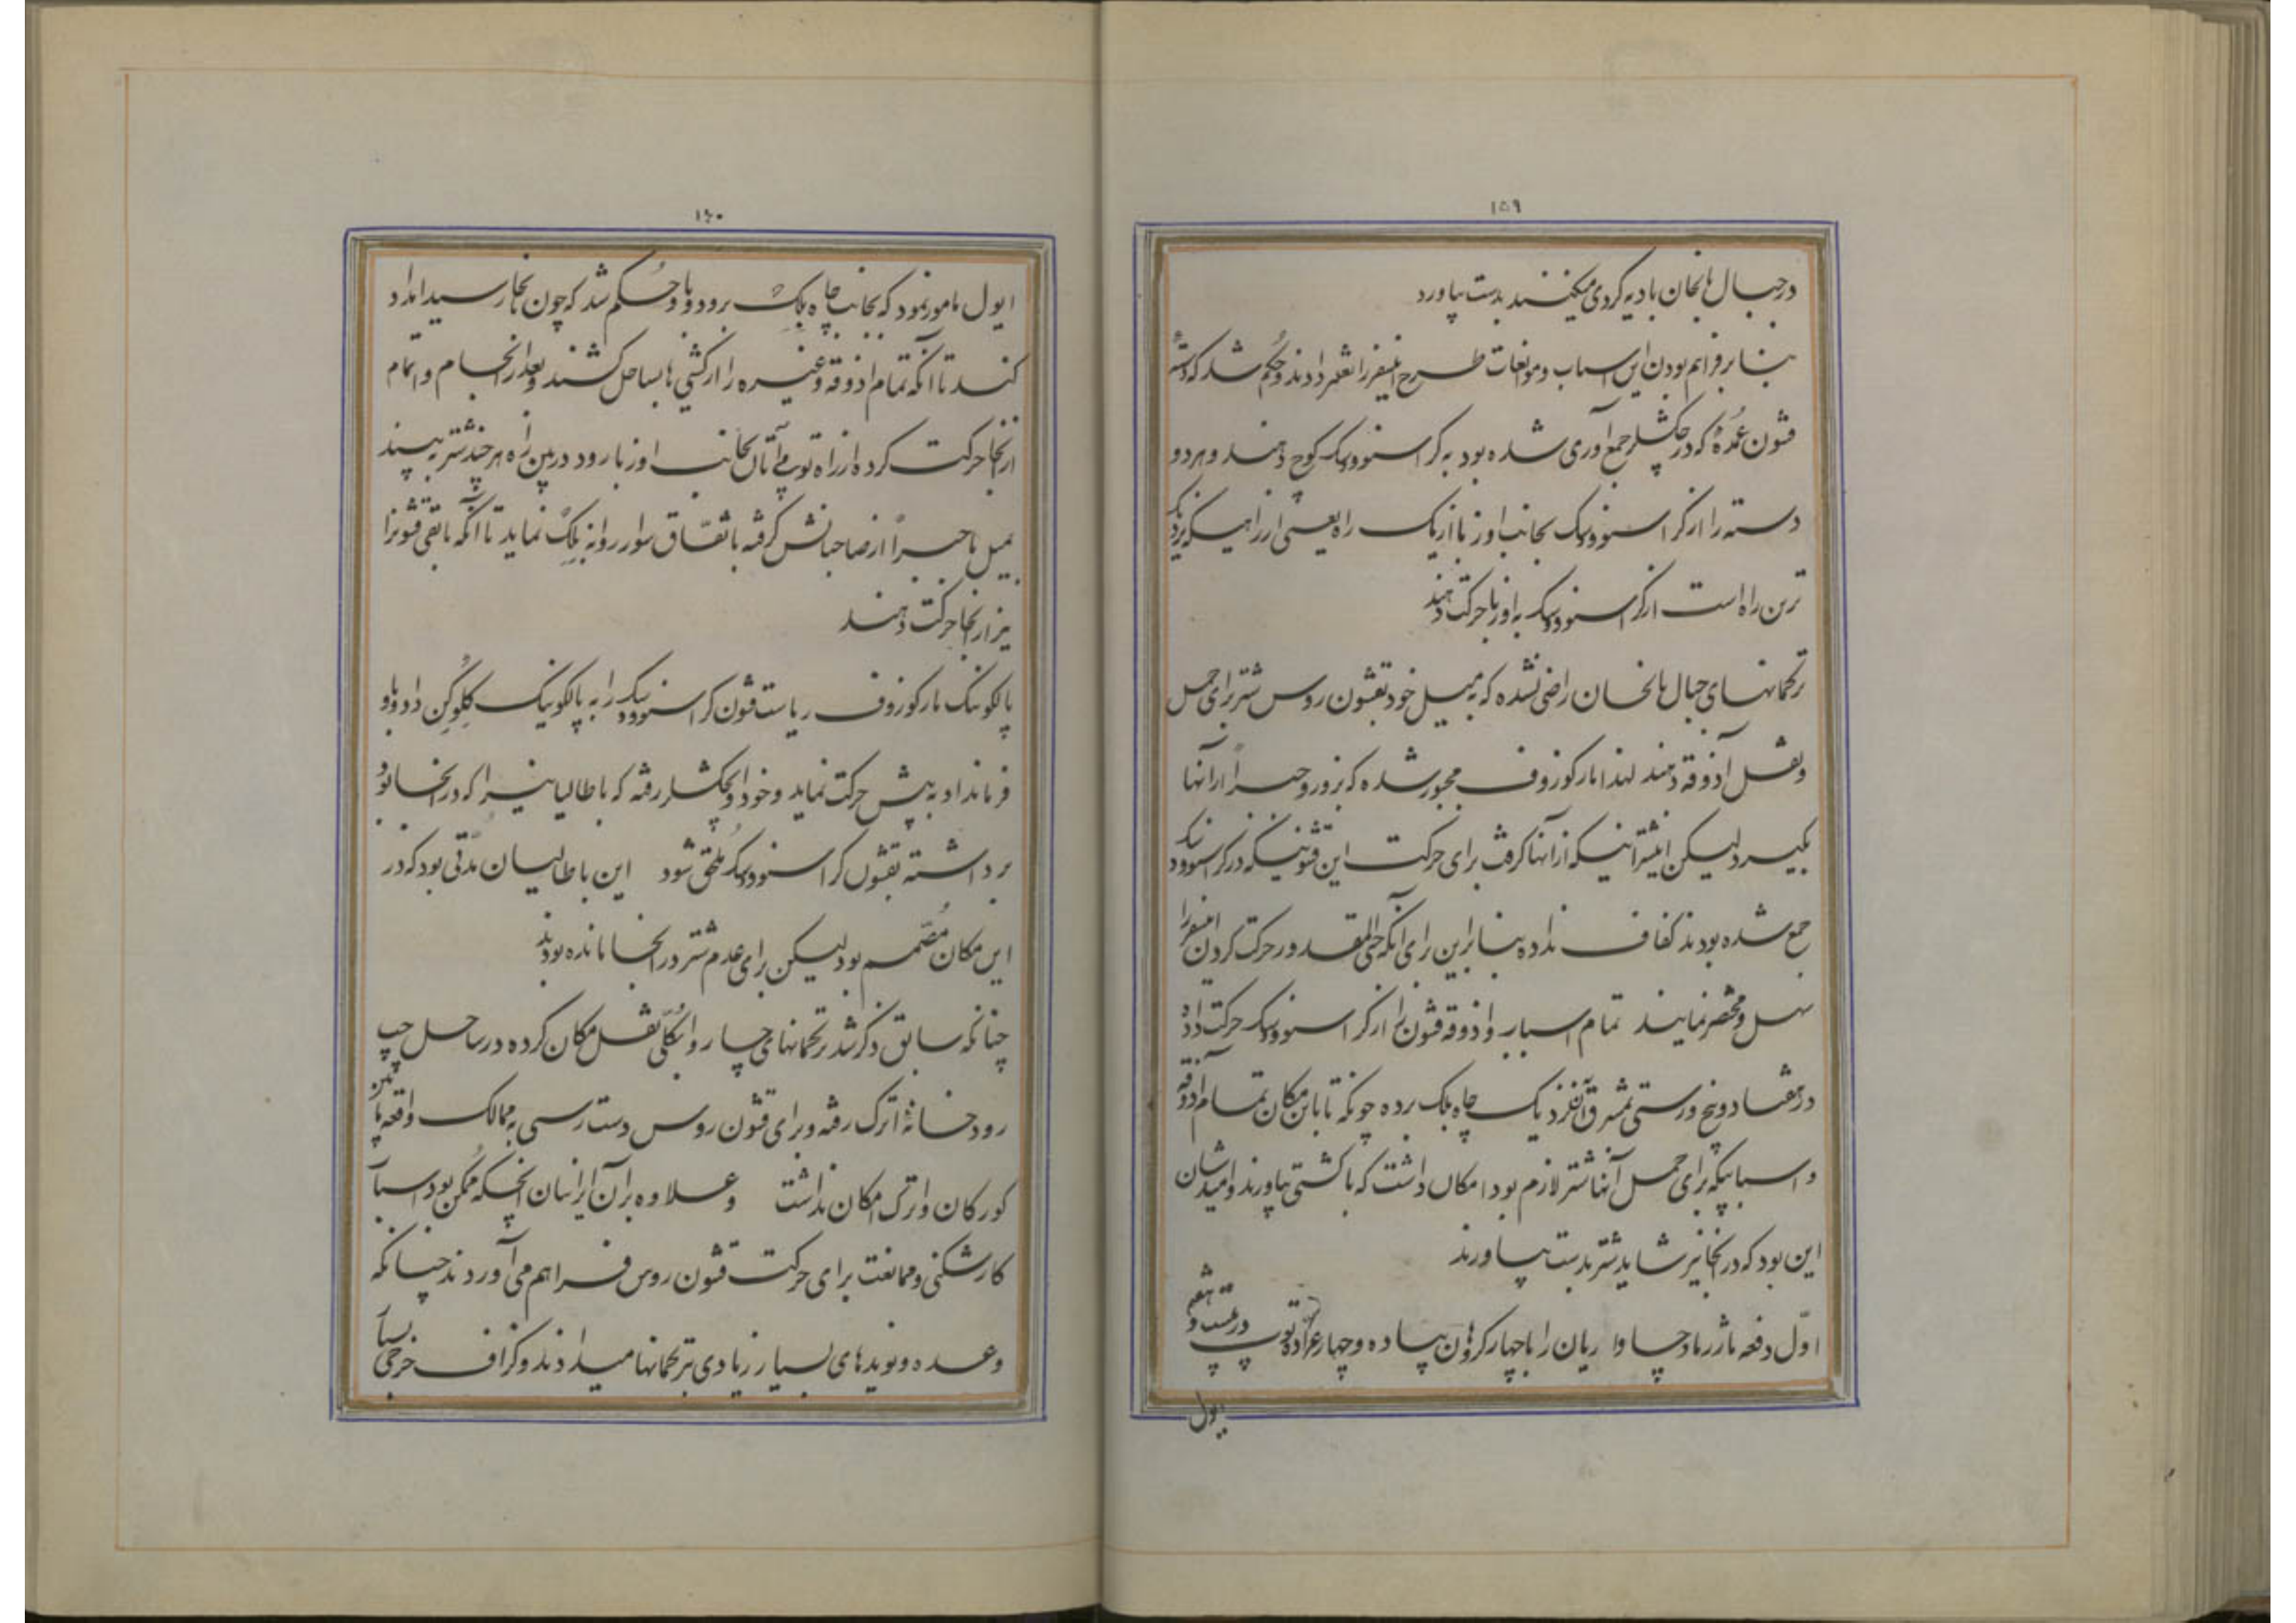 ۱۵۹
در جبال بالخان بادیه گردی میکنند بدست بیاورد
بنا بر فراهم بودن این اسباب و موانعات طرح این سفر را تغییر دادند و حکم شد که دسته
قشون عمدهٔ که در چکشلر جمع آوری شده بود به کراسنوودسک کوچ دهند و هر دو
دسته را از کراسنوودسک بجانب اوزبا از یک راه یعنی از راهیکه نزدیک
ترین راه است از کراسنوودسک به اوزبا حرکت دهند
ترکمانهای جبال بالخان راضی نشده که به میل خود بقشون روس شتر برای حمل
و نقل آذوقه دهند لهذا مارکوزوف مجبور شده که بزور و جبراً از آنها
بگیرد لیکن این شترانیکه از آنها گرفت برای حرکت این قشونیکه در کراسنوودسک
جمع شده بودند کفاف نداده بنابراین برای آنکه حتی المقدور حرکت کردن این سفر را
سهل و مختصر نمایند تمام اسباب و آذوقه قشون را از کراسنوودسک حرکت داده
در هفتاد و پنج ورستی مشرق آن نزدیک چاه بلک برده چونکه تا باین مکان تمام آذوقه
و اسبابیکه برای حمل آنها شتر لازم بود امکان داشت که با کشتی بیاورند و امیدشان
این بود که در آنجا نیز شاید شتر بدست بیاورند
اوّل دفعه ماژر مادچاواریان را با چهار گروهان پیاده و چهار عرّاده توپ در بیست و هفتم
ایول
۱۶۰
ایول مامور نمود که بجانب چاه بلک برود و باو حکم شد که چون بآنجا رسید امداد
کند تا آنکه تمام آذوقه و غیره را از کشتی ها بساحل کشند و بعد از انجام و اتمام
از آنجا حرکت کرده از راه توپیآتان بجانب اوزبا رود در بین راه هر چند شتر به بیند
بمیل یا جبراً از صاحبانش گرفته باتفاق سوار روانه بلک نماید تا آنکه باقی قشونرا
نیز از آنجا حرکت دهند
پالکونیک مارکوزوف ریاست قشون کراسنوودسک را به پالکونیک کلوگن داد و باو
فرمانداد به پیش حرکت نماید و خود او بچکشلر رفته که باطالیانیرا که در آنجا بود
برداشته بقشون کراسنوودسک ملحق شود این باطالیان مدّتی بود که در
این مکان مُصَمّم بود لیکن برای عدم شتر در آنجا مانده بودند
چنانکه سابق ذکر شد ترکمانهای چاروا بکلّی نقل مکان کرده در ساحل چپ
رودخانهٔ اترک رفته و برای قشون روس دست رسی به ممالک واقعه ما بین
کورکان و اترک امکان نداشت و علاوه بر آن ایرانیان آنچکه ممکن بود اسباب
کارشکنی و ممانعت برای حرکت قشون روس فراهم می آوردند چنانکه
وعده و نویدهای بسیار زیادی بترکمانها میدادند و گزاف خرجی بسیار